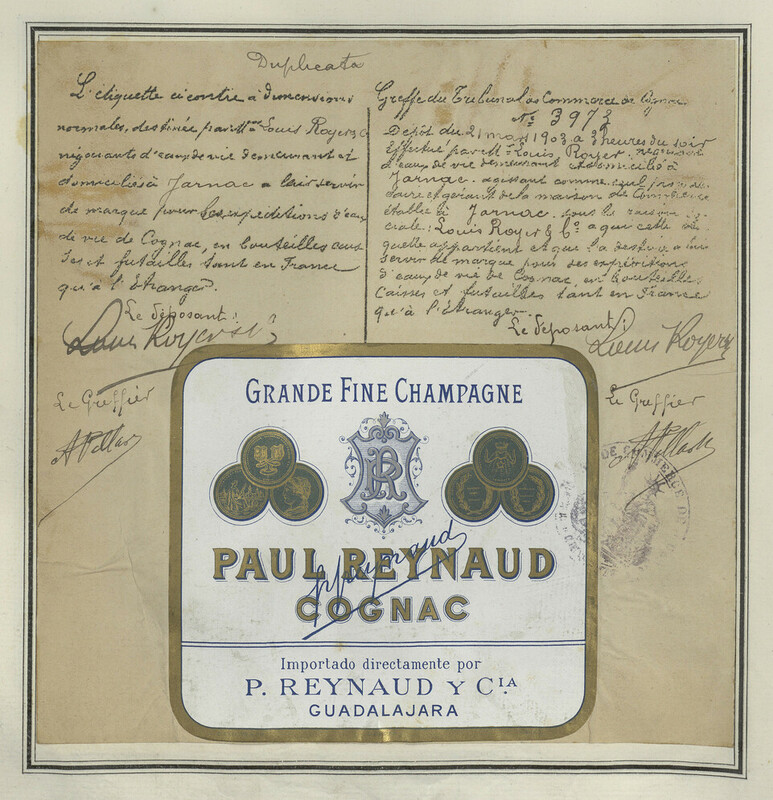 Duplicata
L'étiquette ci contre à dimensions
normales, destinée par M. Louis Royer & Co
négociants d'eaux de vie demeurant et
domiciliés à Jarnac a lair servir
de marque pour les expéditions d'eau
de vie de Cognac, en bouteilles cais
ses et futailles tant en France
qu'à l'étranger.
Le déposant :
Louis Royer
Le Greffier
Greffe du Tribunal de Commerce de Cognac
No 3973
Dépôt du 21 mars 1903 à 3 heures du soir
Effectué par M. Louis Royer, négociant
d'eaux de vie demeurant et domicilié à
Jarnac, agissant comme seul proprié
taire et gérant de la maison de Commerce
établie à Jarnac, sous la raison so
ciale : Louis Royer & Co. a que cette éti
quette appartient et que la destine à
servir de marque pour ses expéditions
d'eaux de vie de Cognac, en bouteilles
Caisses et futailles tant en France
qu'à l'étranger.
Le déposant :
Louis Royer
Le Greffier
DE COMMERCE DE
GRANDE FINE CHAMPAGNE
PR
PAUL REYNAUD
COGNAC
Importado directamente por
P. REYNAUD Y CIA.
GUADALAJARA